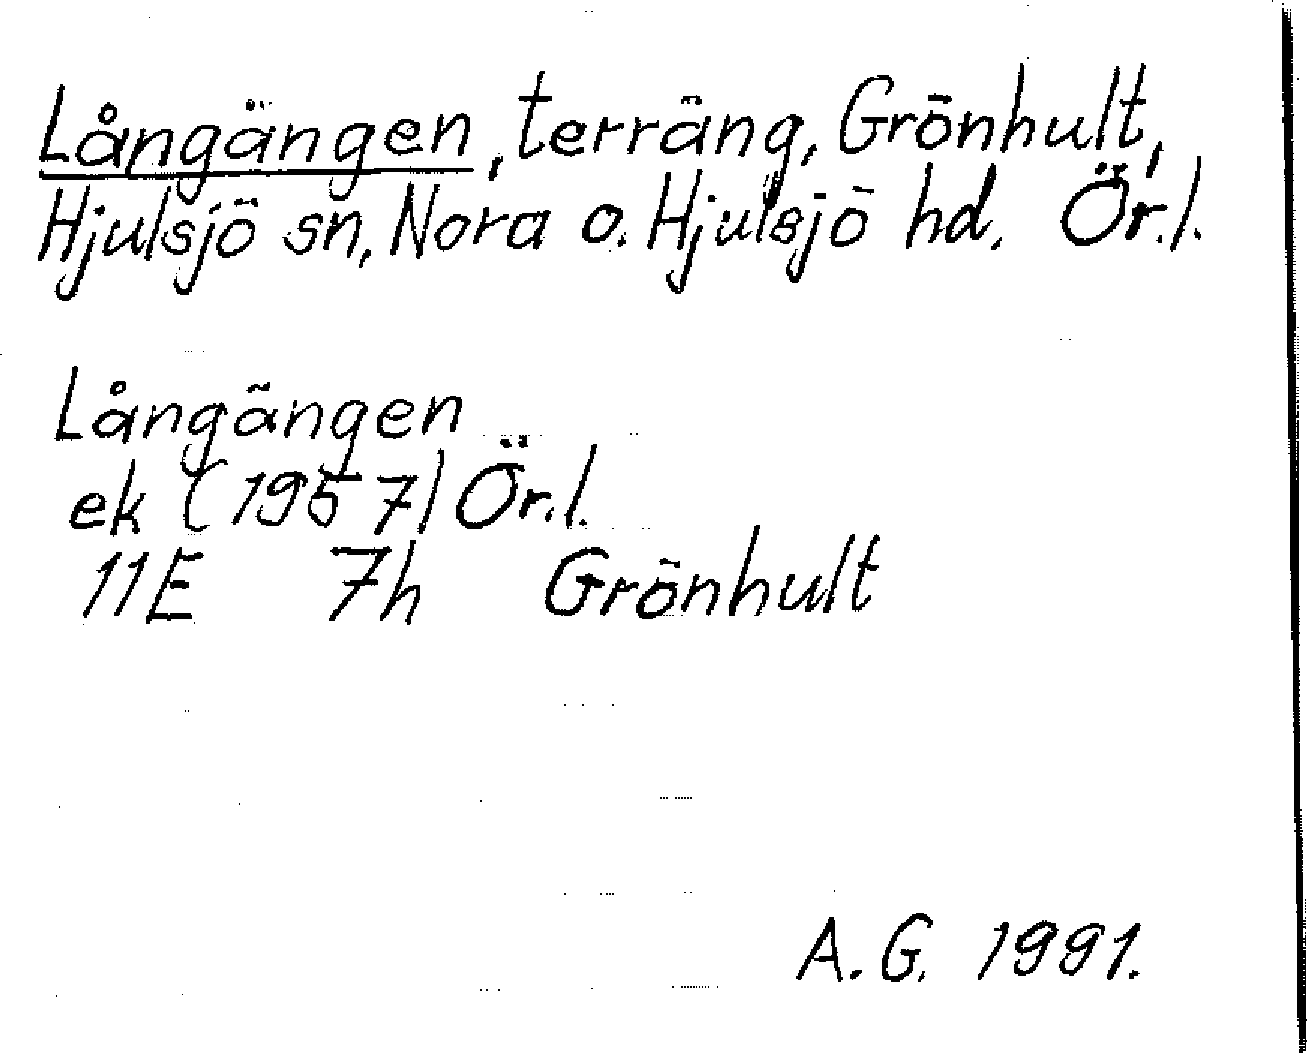 Långängen, terräng, Grönhult,
Hjulsjö sn, Nora o. Hjulsjö hd. Ör.l.
Långängen
ek (1957) Ör.l.
11E 7h Grönhult
A.G. 1991.